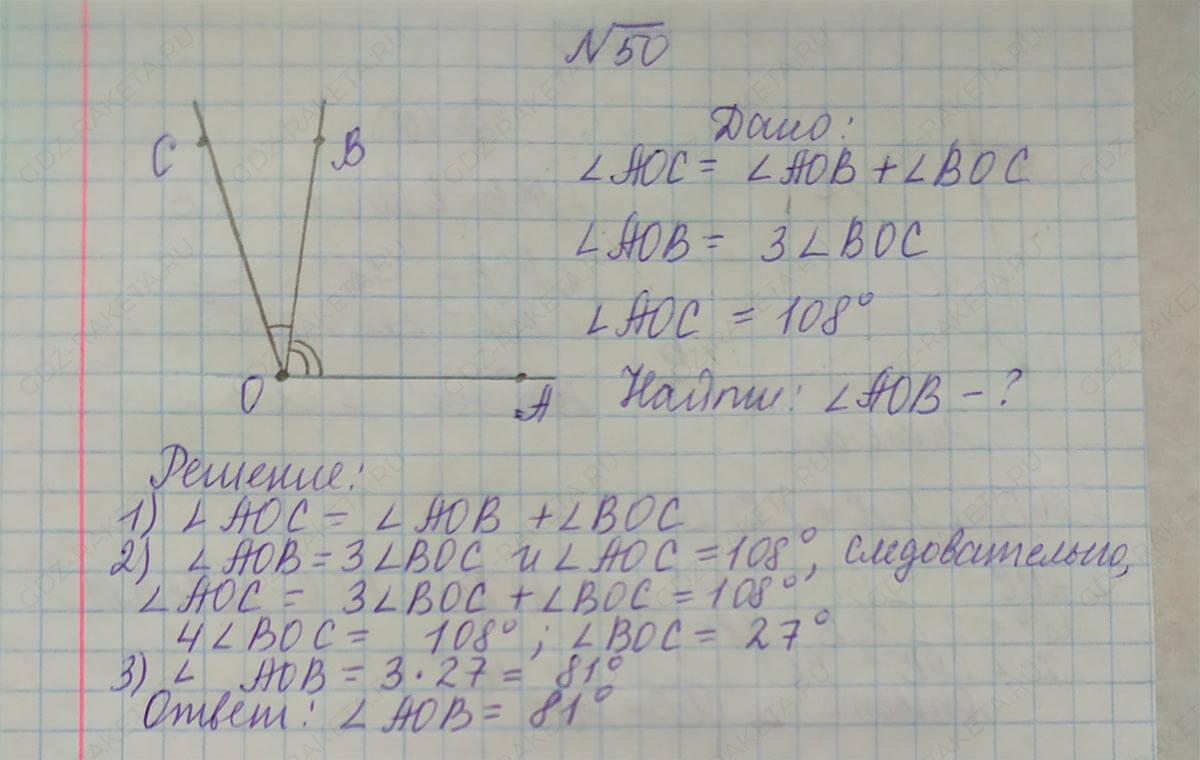 №50
C
B
O
A
Дано:
∠AOC = ∠AOB + ∠BOC
∠AOB = 3∠BOC
∠AOC = 108°
Найти: ∠AOB - ?
Решение:
1) ∠AOC = ∠AOB + ∠BOC
2) ∠AOB = 3∠BOC и ∠AOC = 108°, следовательно,
∠AOC = 3∠BOC + ∠BOC = 108°
4∠BOC = 108° ; ∠BOC = 27°
3) ∠ AOB = 3 · 27 = 81°
Ответ: ∠AOB = 81°
GDZ-RAKETA.RU